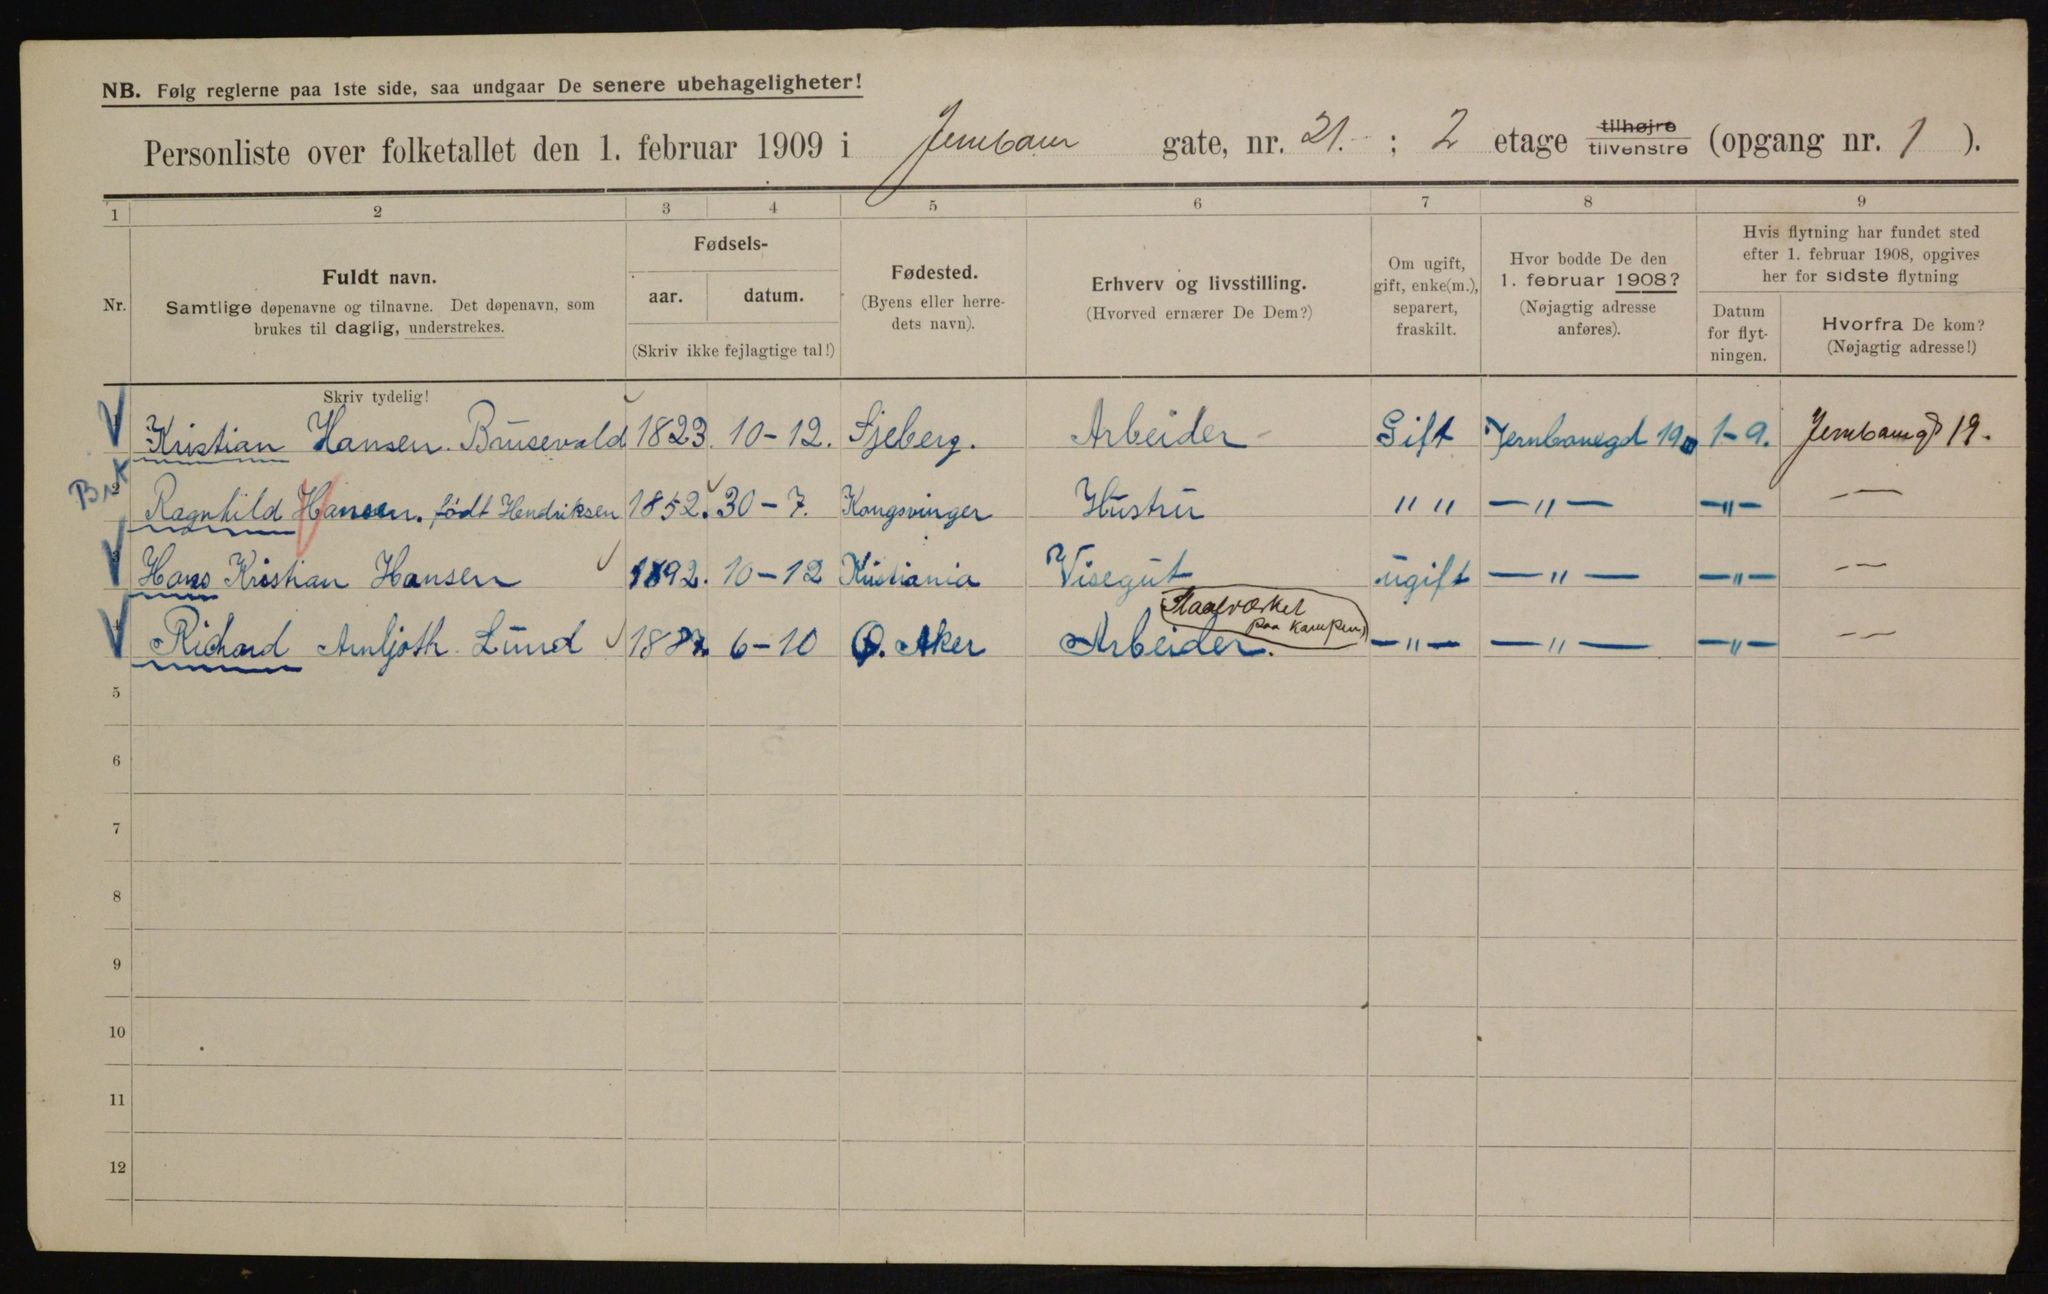 NB. Følg reglerne paa 1ste side, saa undgaar De senere ubehageligheter!
Personliste over folketallet den 1. februar 1909 i Jernbane gate, nr. 21. ; 2 etage tilhøjre tilvenstre (opgang nr. 1 ).
1 2 3 4 5 6 7 8 9
Nr.
Fuldt navn.
Samtlige døpenavne og tilnavne. Det døpenavn, som
brukes til daglig, understrekes.
Fødsels-
aar. datum.
(Skriv ikke fejlagtige tal!)
Fødested.
(Byens eller herre-
dets navn).
Erhverv og livsstilling.
(Hvorved ernærer De Dem?)
Om ugift,
gift, enke(m.),
separert,
fraskilt.
Hvor bodde De den
1. februar 1908?
(Nøjagtig adresse
anføres).
Hvis flytning har fundet sted
efter 1. februar 1908, opgives
her for sidste flytning
Datum
for flyt-
ningen.
Hvorfra De kom?
(Nøjagtig adresse!)
Skriv tydelig!
1 Kristian Hansen. Brusevold 1823. 10-12. Sjeberg. Arbeider Gift Jernbanegd 19 1-9. Jernbaneg 19.
2 Ragnhild Hansen. født Hendriksen 1852. 30-7. Kongsvinger Hustru " " —"— —"— ——
3 Hans Kristian Hansen 1892. 10-12 Kristiania Visegut ugift —"— —"— ——
Staalværket
paa Kampen
4 Richard Arnljoth Lund 188 6-10 Ø. Aker Arbeider. —"— —"— —"— ——
5
6
7
8
9
10
11
12